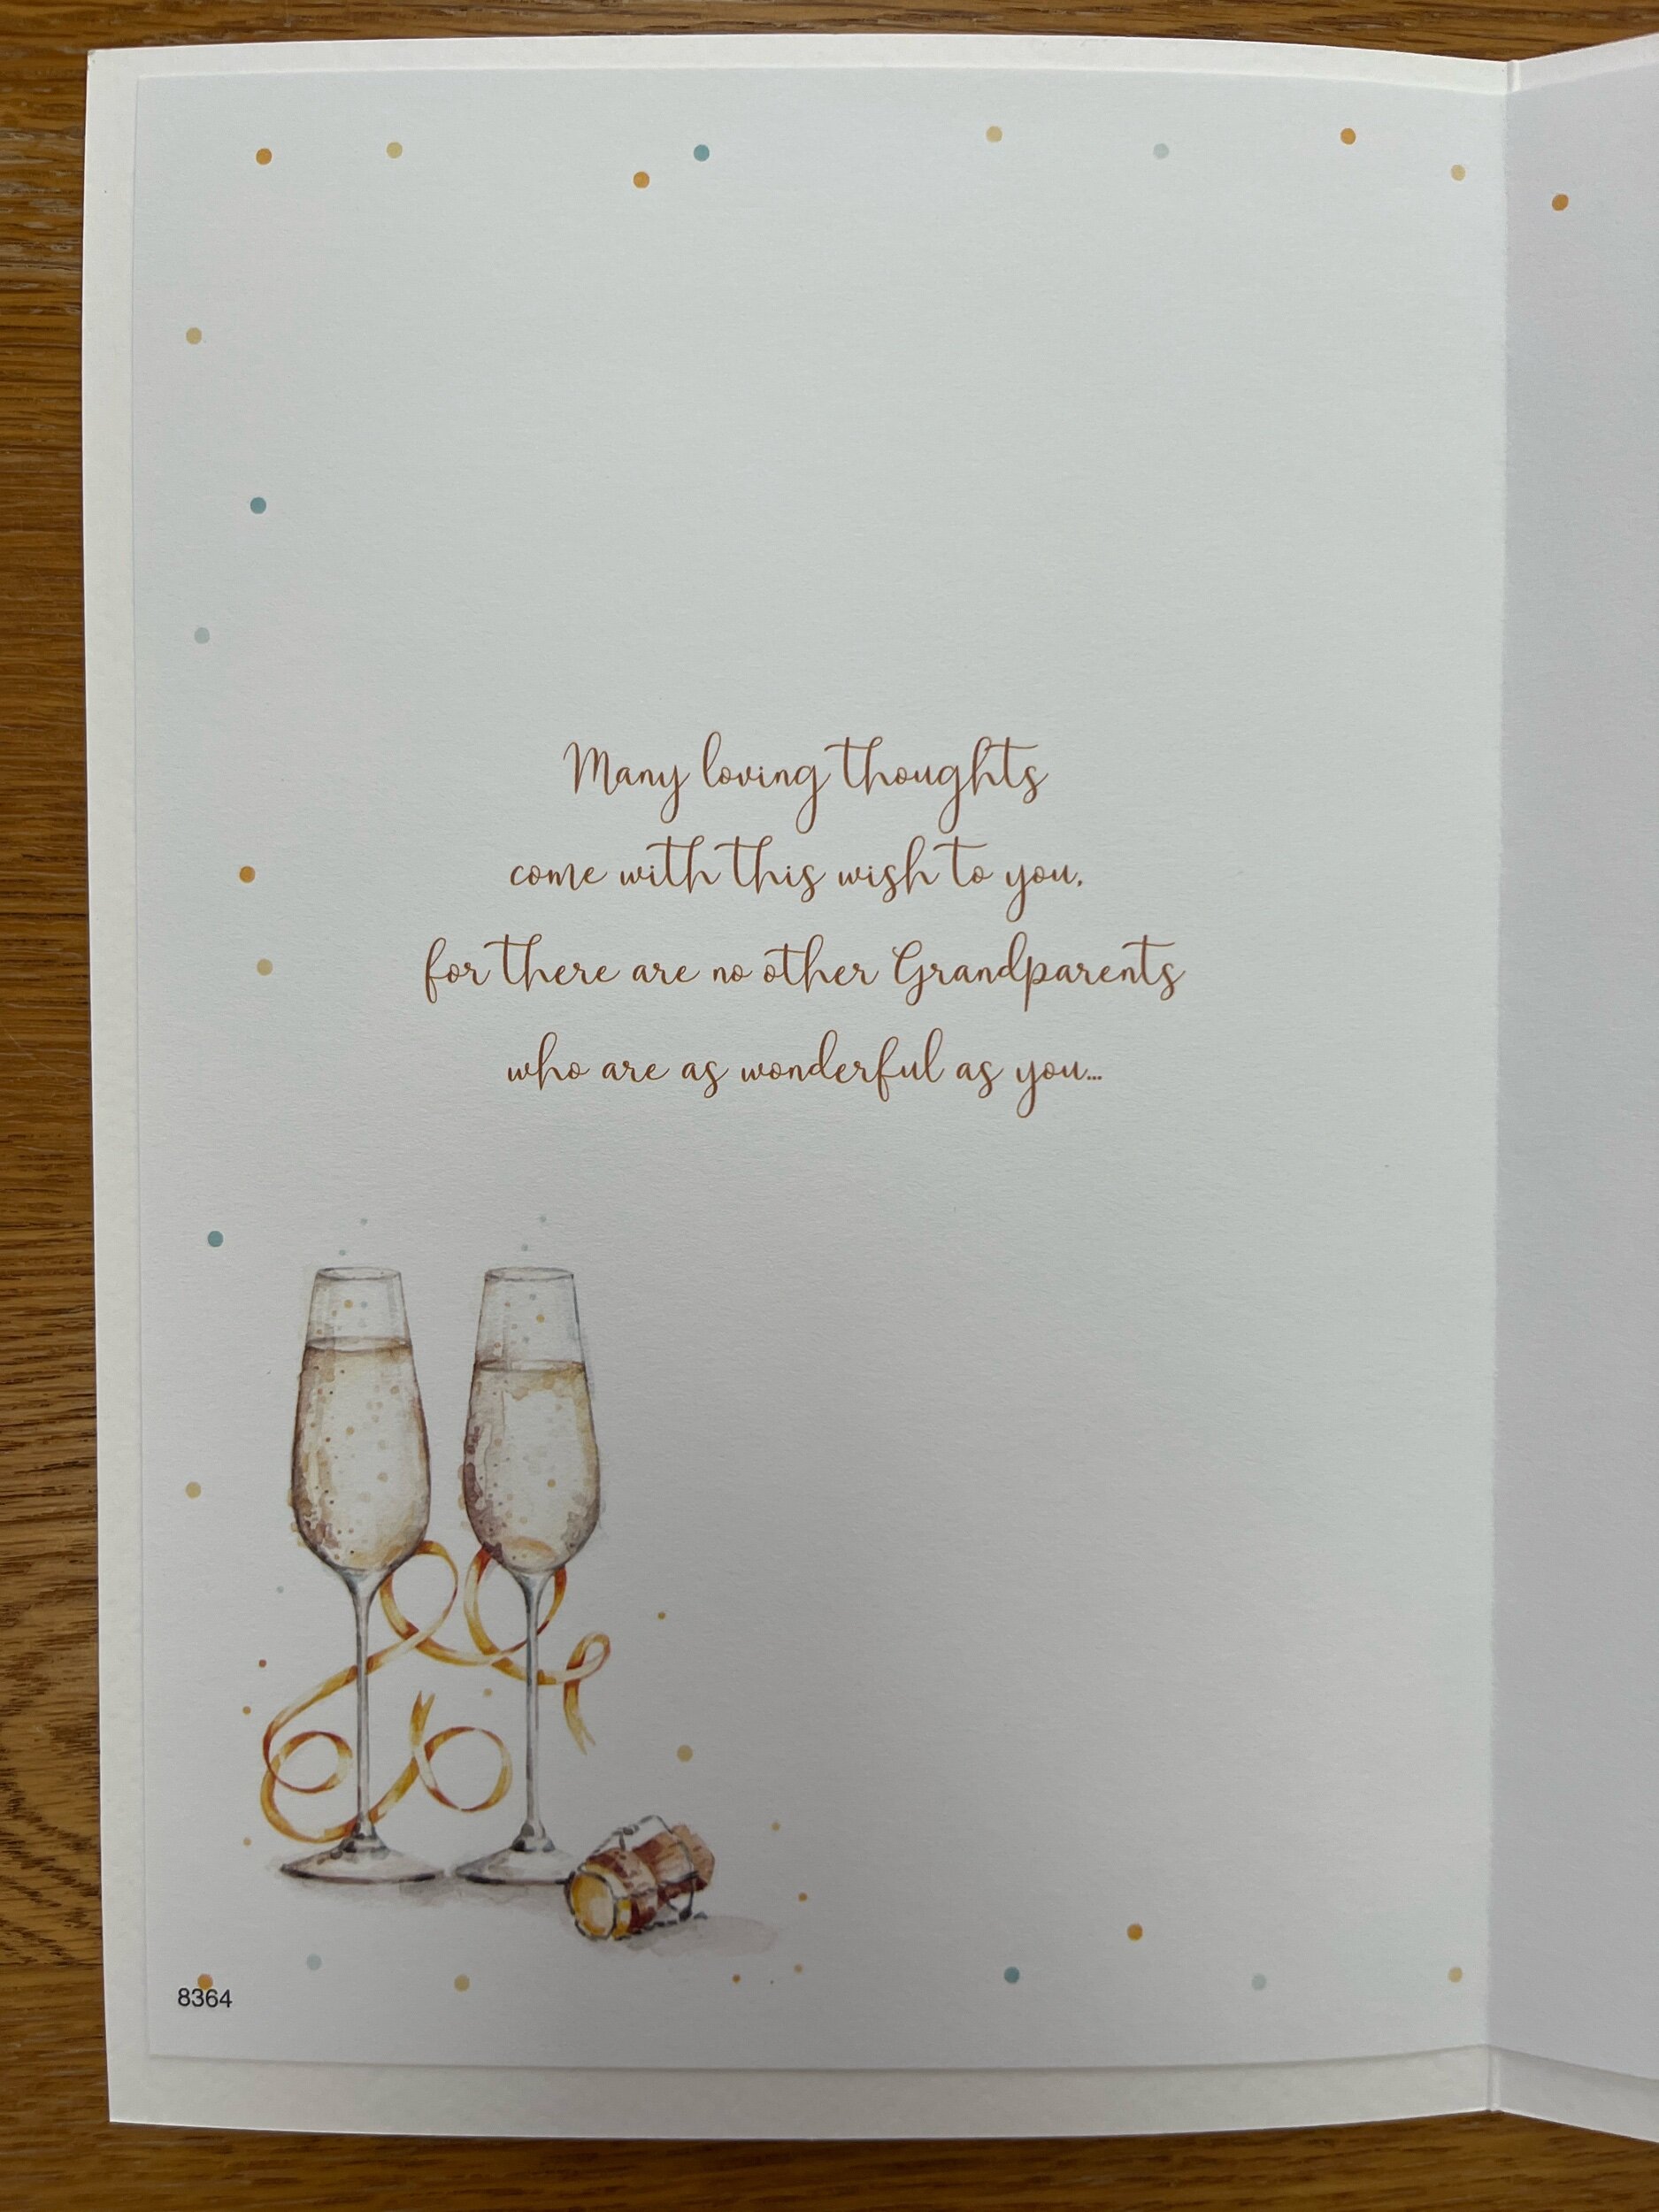 Many loving thoughts
come with this wish to you,
for there are no other Grandparents
who are as wonderful as you...
8364